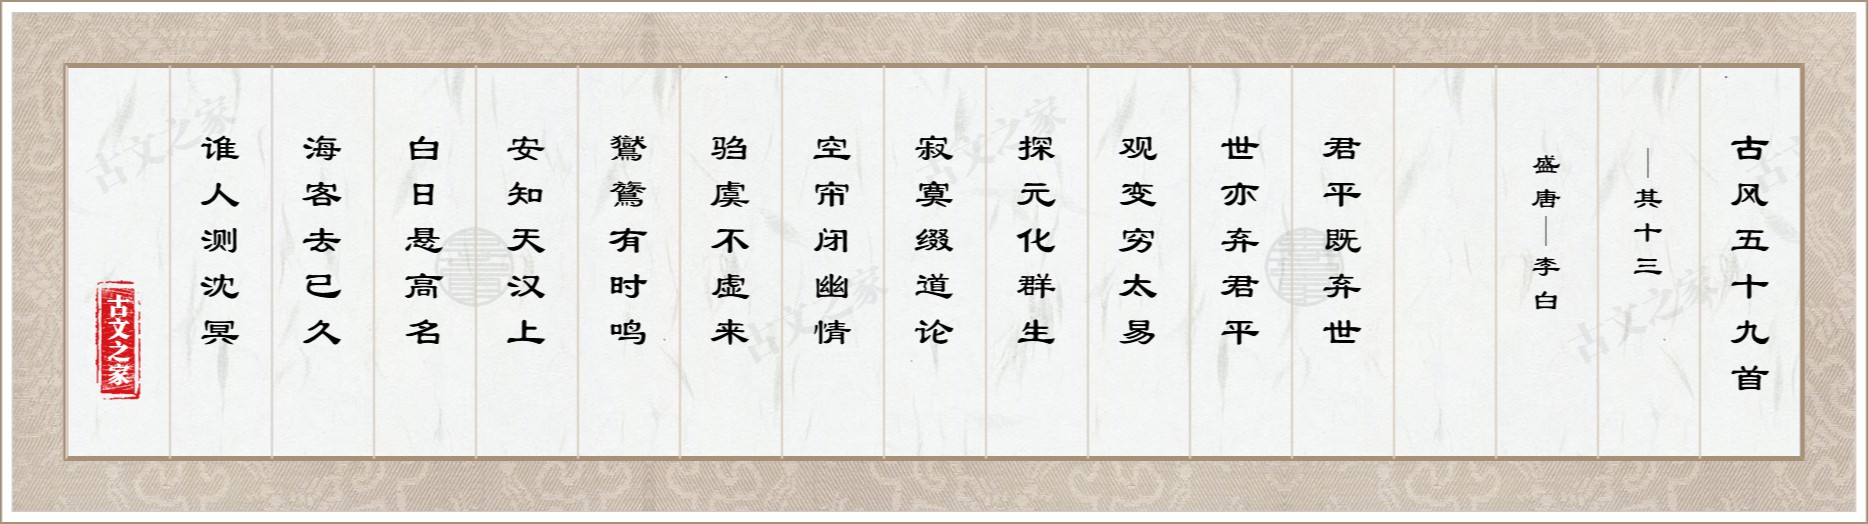 古风五十九首
—其十三
盛唐—李白
君平既弃世
世亦弃君平
观变穷太易
探元化群生
寂寞缀道论
空帘闭幽情
驺虞不虚来
鸑鷟有时鸣
安知天汉上
白日悬高名
海客去已久
谁人测沈冥
古文之家